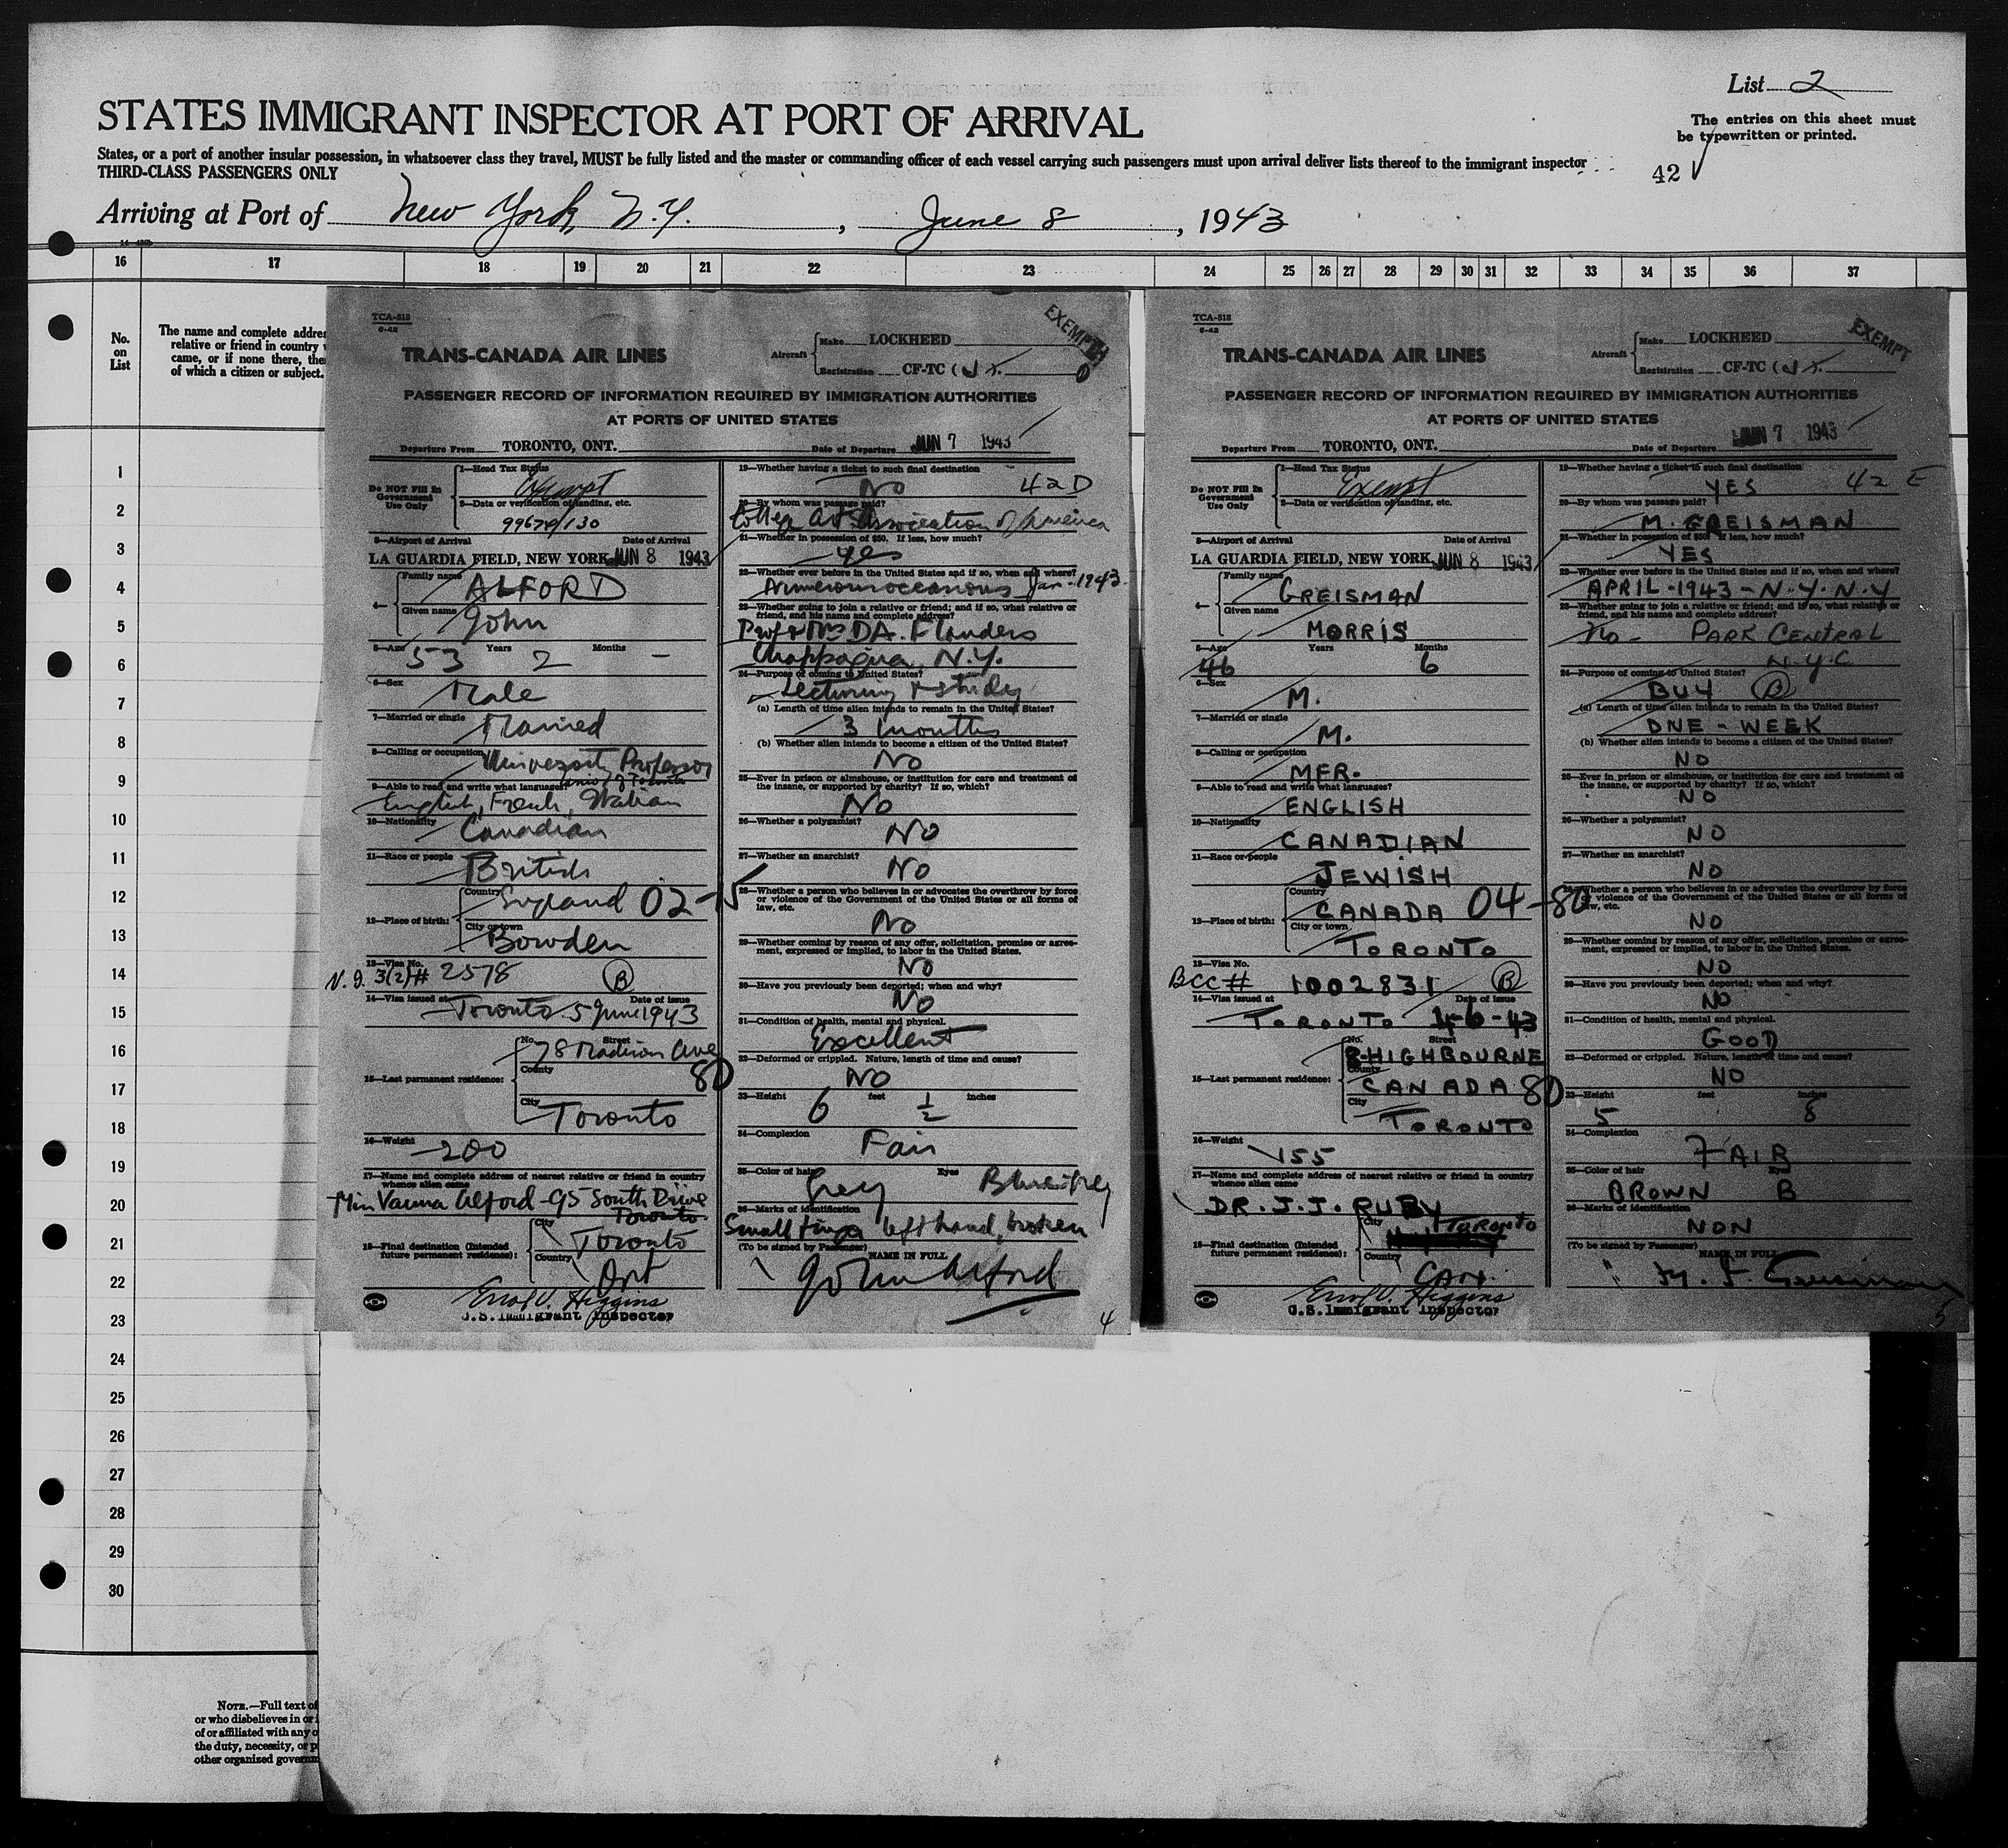 List 2
STATES IMMIGRANT INSPECTOR AT PORT OF ARRIVAL
The entries on this sheet must
be typewritten or printed.
States, or a port of another insular possession, in whatsoever class they travel, MUST be fully listed and the master or commanding officer of each vessel carrying such passengers must upon arrival deliver lists thereof to the immigrant inspector
THIRD-CLASS PASSENGERS ONLY
42
Arriving at Port of New York, N.Y., June 8, 1943
16 17 18 19 20 21 22 23 24 25 26 27 28 29 30 31 32 33 34 35 36 37
No.
on
List
The name and complete addre
relative or friend in country
came, or if none there, the
of which a citizen or subject.
1
2
3
4
5
6
7
8
9
10
11
12
13
14
15
16
17
18
19
20
21
22
23
24
25
26
27
28
29
30
NOTE.—Full text of
or who disbelieves in or
of or affiliated with any o
the duty, necessity, or p
other organized governm
TCA-518
6-42
EXEMPT
TRANS-CANADA AIR LINES
Aircraft Make LOCKHEED
Registration CF-TC
PASSENGER RECORD OF INFORMATION REQUIRED BY IMMIGRATION AUTHORITIES
AT PORTS OF UNITED STATES
Departure From TORONTO, ONT. Date of Departure JUN 7 1943
Do NOT Fill In
Government
Use Only
1—Head Tax Status
Exempt
2—Data or verification of landing, etc.
3—Airport of Arrival Date of Arrival
LA GUARDIA FIELD, NEW YORK JUN 8 1943
4— Family name ALFORD
Given name John
5—Age 53 Years 2 Months —
6—Sex Male
7—Married or single Married
8—Calling or occupation University Professor
Univ. of Toronto
9—Able to read and write what languages?
English, French, Italian
10—Nationality Canadian
11—Race or people British
12—Place of birth: Country England 02-15
City or town Bowden
13—Visa No. 3(2)# 2578 B
14—Visa issued at Date of issue
Toronto 5 June 1943
15—Last permanent residence: No. Street 78 Madison Ave
County 80
City Toronto
16—Weight 200
17—Name and complete address of nearest relative or friend in country
whence alien came
Alford - 95 South Drive
Toronto
18—Final destination (Intended
future permanent residence): City Toronto
Country Ont
Errol V. Higgins
U.S. Immigrant Inspector
19—Whether having a ticket to such final destination
No 42D
20—By whom was passage paid?
College Art Association of America
21—Whether in possession of $50. If less, how much?
yes
22—Whether ever before in the United States and if so, when and where?
Numerous occasions Jan-1943
23—Whether going to join a relative or friend; and if so, what relative or
friend, and his name and complete address?
Prof & Mrs D.A. Flanders
Chappaqua, N.Y.
24—Purpose of coming to United States?
Lecturing & study
(a) Length of time alien intends to remain in the United States?
3 months
(b) Whether alien intends to become a citizen of the United States?
No
25—Ever in prison or almshouse, or institution for care and treatment of
the insane, or supported by charity? If so, which?
No
26—Whether a polygamist? No
27—Whether an anarchist? No
28—Whether a person who believes in or advocates the overthrow by force
or violence of the Government of the United States or all forms of
law, etc.
No
29—Whether coming by reason of any offer, solicitation, promise or agree-
ment, expressed or implied, to labor in the United States.
No
30—Have you previously been deported; when and why?
No
31—Condition of health, mental and physical.
Excellent
32—Deformed or crippled. Nature, length of time and cause?
No
33—Height 6 feet ½ inches
34—Complexion Fair
35—Color of hair Grey Eyes Blue-grey
36—Marks of identification
Small finger left hand, broken
(To be signed by Passenger) NAME IN FULL
John Alford
4
TCA-518
6-42
EXEMPT
TRANS-CANADA AIR LINES
Aircraft Make LOCKHEED
Registration CF-TC
PASSENGER RECORD OF INFORMATION REQUIRED BY IMMIGRATION AUTHORITIES
AT PORTS OF UNITED STATES
Departure From TORONTO, ONT. Date of Departure JUN 7 1943
Do NOT Fill In
Government
Use Only
1—Head Tax Status
Exempt
2—Data or verification of landing, etc.
3—Airport of Arrival Date of Arrival
LA GUARDIA FIELD, NEW YORK JUN 8 1943
4— Family name GREISMAN
Given name MORRIS
5—Age 46 Years 6 Months
6—Sex M.
7—Married or single M.
8—Calling or occupation MFR.
9—Able to read and write what languages?
ENGLISH
10—Nationality CANADIAN
11—Race or people JEWISH
12—Place of birth: Country CANADA 04-80
City or town TORONTO
13—Visa No. BCC# 1002831 B
14—Visa issued at Date of issue
TORONTO
15—Last permanent residence: No. Street 8-HIGHBOURNE
County CANADA 80
City TORONTO
16—Weight 155
17—Name and complete address of nearest relative or friend in country
whence alien came
DR. J.J. RUBY
18—Final destination (Intended
future permanent residence): City Toronto
Country CAN.
Errol V. Higgins
U.S. Immigrant Inspector
19—Whether having a ticket to such final destination
YES 42 E
20—By whom was passage paid?
M. GREISMAN
21—Whether in possession of $50. If less, how much?
YES
22—Whether ever before in the United States and if so, when and where?
APRIL-1943-N.Y.N.Y
23—Whether going to join a relative or friend; and if so, what relative or
friend, and his name and complete address?
No - PARK CENTRAL
N.Y.C
24—Purpose of coming to United States?
BUY B
(a) Length of time alien intends to remain in the United States?
ONE-WEEK
(b) Whether alien intends to become a citizen of the United States?
NO
25—Ever in prison or almshouse, or institution for care and treatment of
the insane, or supported by charity? If so, which?
NO
26—Whether a polygamist? NO
27—Whether an anarchist? NO
28—Whether a person who believes in or advocates the overthrow by force
or violence of the Government of the United States or all forms of
law, etc.
NO
29—Whether coming by reason of any offer, solicitation, promise or agree-
ment, expressed or implied, to labor in the United States.
NO
30—Have you previously been deported; when and why?
NO
31—Condition of health, mental and physical.
GOOD
32—Deformed or crippled. Nature, length of time and cause?
NO
33—Height 5 feet 8 inches
34—Complexion FAIR
35—Color of hair BROWN Eyes B
36—Marks of identification
NON
(To be signed by Passenger) NAME IN FULL
5